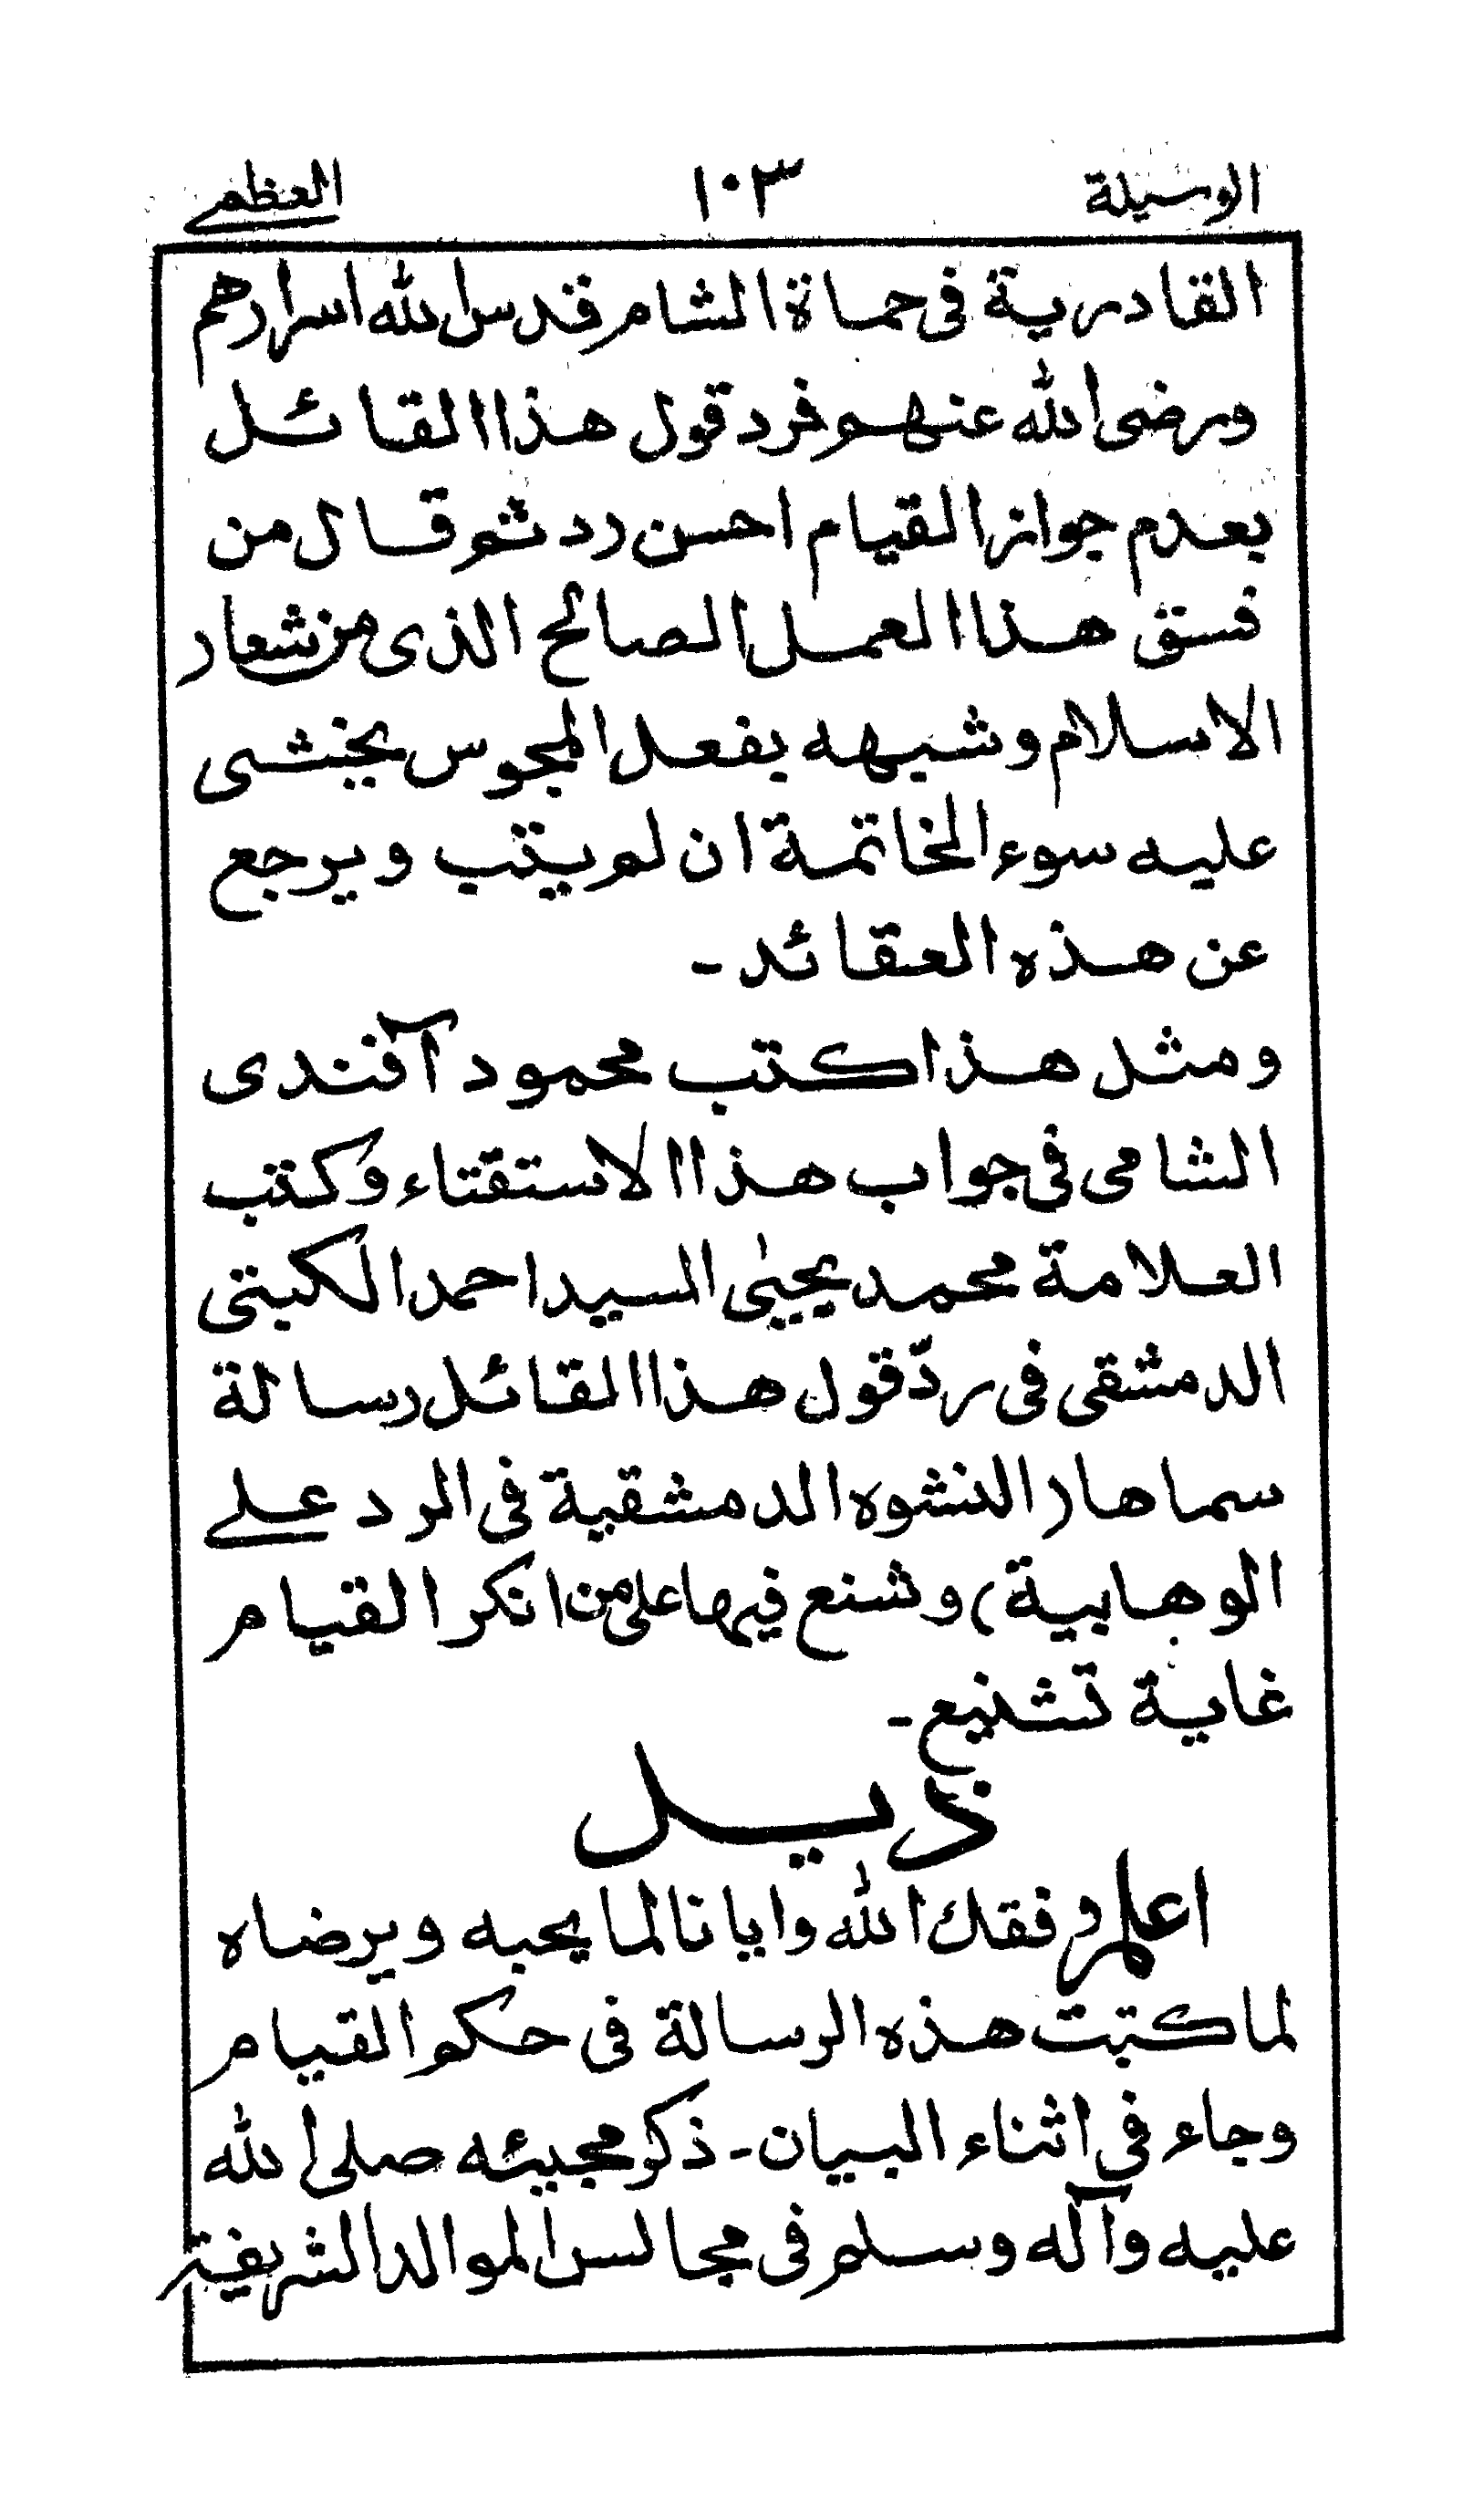 الوسيلة ١٠٣ العظمے
القادرية فى حماة الشام قدس الله اسرارهم
ورضى الله عنهم فرد قول هذا القائل
بعدم جواز القيام احسن رد ثم قال من
فسق هذا العمل الصالح الذى من شعار
الاسلام وشبهه بفعل المجوس يخشى
عليه سوء الخاتمة ان لم يتب ويرجع
عن هذه العقائد۔
ومثل هذا كتب محمود آفندى
الشامى فى جواب هذا الاستفتاء وكتب
العلامة محمد يحيىٰ السيد احمد الكبتى
الدمشقى فى ردّ قول هذا القائل رسالة
سماها (النشوه الدمشقية فى الرد علے
الوهابية) وشنع فيها على من انكر القيام
غاية تشنيع۔
ذيل
اعلم وفقك الله وايانا لما يحبه ويرضاه
لما كتبت هذه الرسالة فى حكم القيام
وجاء فى اثناء البيان۔ ذكر مجيئه صلى الله
عليه وآله وسلم فى مجالس الموالد الشريفة